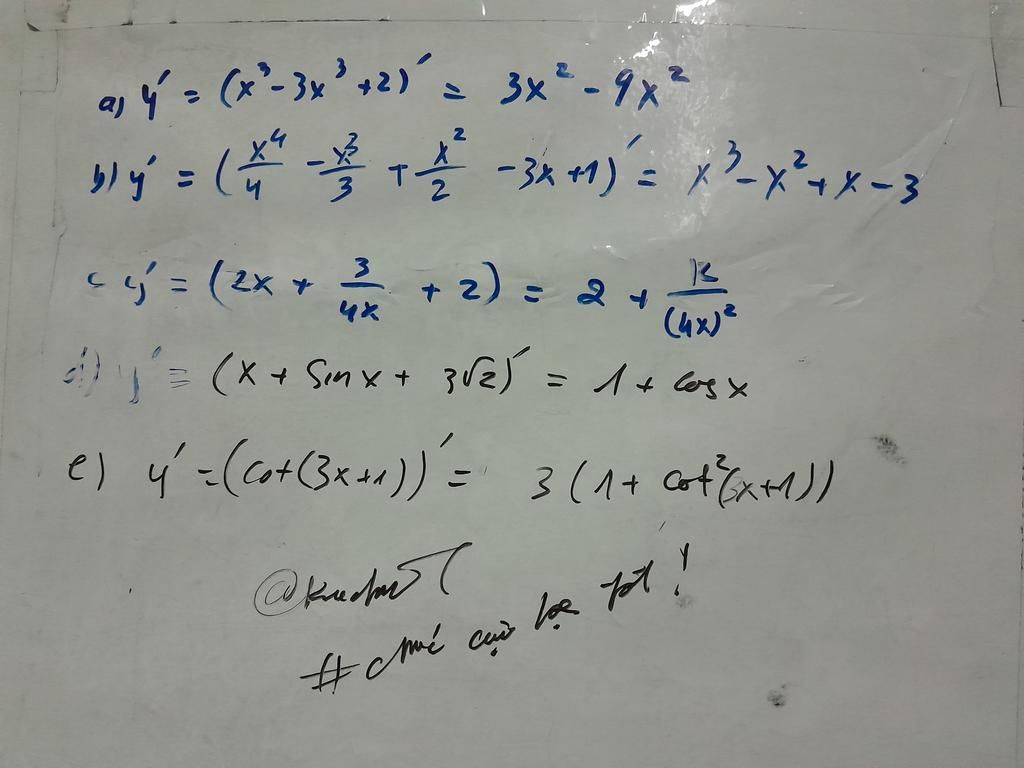 a) y' = (x³ - 3x³ + 2)' = 3x² - 9x²
b) y' = (x⁴/4 - x³/3 + x²/2 - 3x + 1)' = x³ - x² + x - 3
c y' = (2x + 3/4x + 2) = 2 + 12/(4x)²
d) y' = (x + sin x + 3√2)' = 1 + cos x
e) y' = (cot(3x+1))' = 3(1 + cot²(3x+1))
# chúc cậu học tốt !